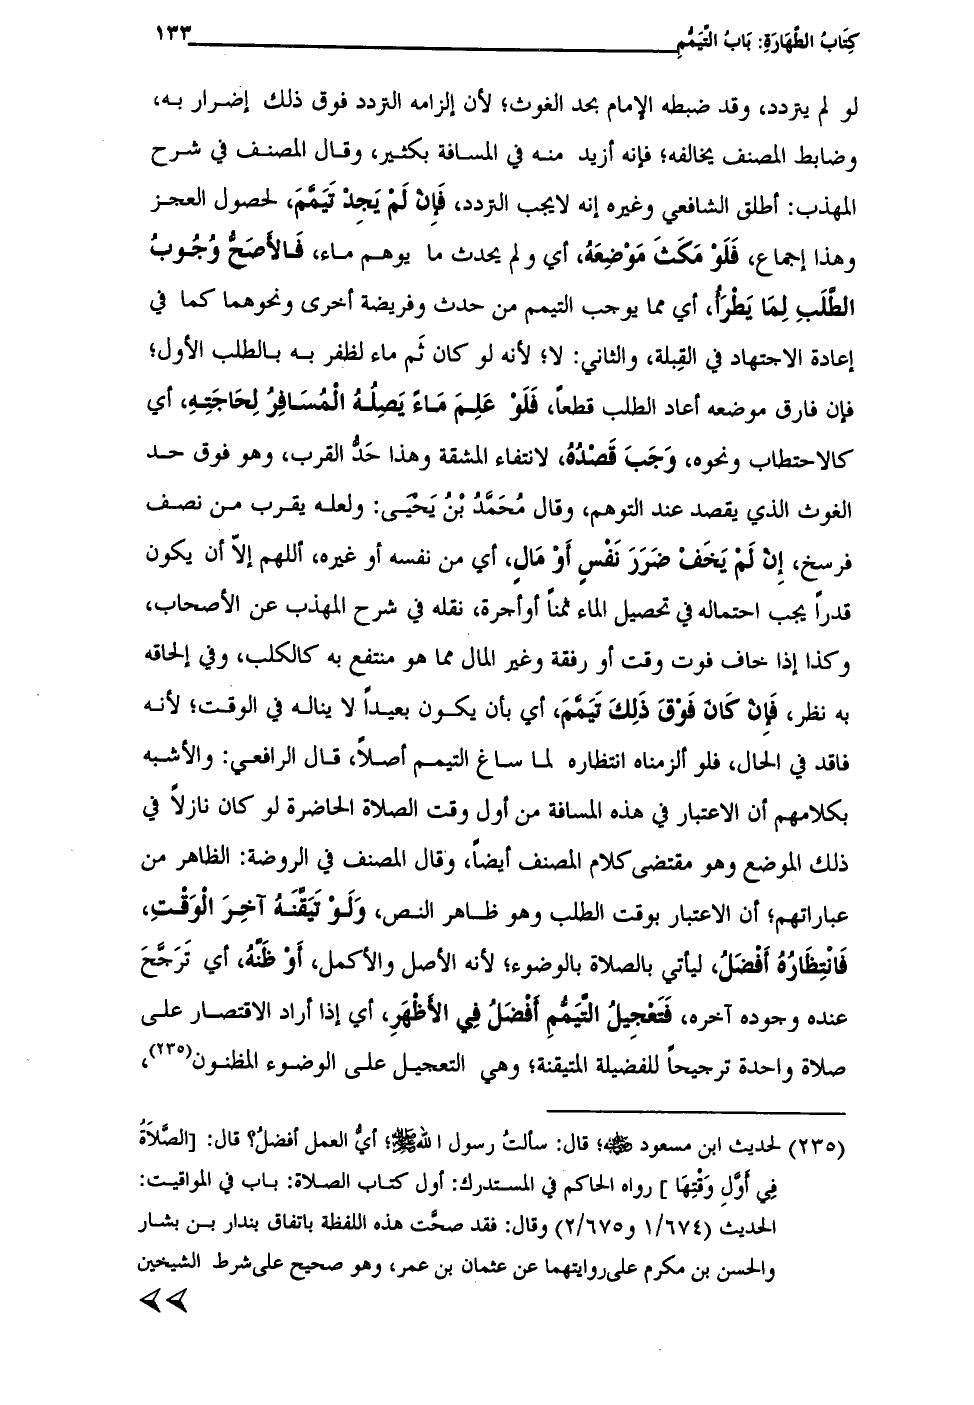 كِتَابُ الطَّهَارَةِ: بَابُ التَّيَمُّمِ ١٣٣
لو لم يتردد، وقد ضبطه الإمام بحد الغوث؛ لأن إلزامه التردد فوق ذلك إضرار به،
وضابط المصنف يخالفه؛ فإنه أزيد منه في المسافة بكثير، وقال المصنف في شرح
المهذب: أطلق الشافعي وغيره إنه لايجب التردد، فَإِنْ لَمْ يَجِدْ تَيَمَّمَ، لحصول العجز
وهذا إجماع، فَلَوْ مَكَثَ مَوْضِعَهُ، أي ولم يحدث ما يوهم ماء، فَالأَصَحُّ وُجُوبُ
الطَّلَبِ لِمَا يَطْرَأُ، أي مما يوجب التيمم من حدث وفريضة أخرى ونحوهما كما في
إعادة الاجتهاد في القِبلة، والثاني: لا؛ لأنه لو كان ثَم ماء لظفر به بالطلب الأول؛
فإن فارق موضعه أعاد الطلب قطعاً، فَلَوْ عَلِمَ مَاءً يَصِلُهُ الْمُسَافِرُ لِحَاجَتِهِ، أي
كالاحتطاب ونحوه، وَجَبَ قَصْدُهُ، لانتفاء المشقة وهذا حَدُّ القرب، وهو فوق حد
الغوث الذي يقصد عند التوهم، وقال مُحَمَّدُ بْنُ يَحْيَى: ولعله يقرب من نصف
فرسخ، إِنْ لَمْ يَخَفْ ضَرَرَ نَفْسٍ أَوْ مَالٍ، أي من نفسه أو غيره، أللهم إلاّ أن يكون
قدراً يجب احتماله في تحصيل الماء ثمناً أوأجرة، نقله في شرح المهذب عن الأصحاب،
وكذا إذا خاف فوت وقت أو رفقة وغير المال مما هو منتفع به كالكلب، وفي إلحاقه
به نظر، فَإِنْ كَانَ فَوْقَ ذَلِكَ تَيَمَّمَ، أي بأن يكون بعيداً لا يناله في الوقت؛ لأنه
فاقد في الحال، فلو ألزمناه انتظاره لما ساغ التيمم أصلاً، قال الرافعي: والأشبه
بكلامهم أن الاعتبار في هذه المسافة من أول وقت الصلاة الحاضرة لو كان نازلاً في
ذلك الموضع وهو مقتضى كلام المصنف أيضاً، وقال المصنف في الروضة: الظاهر من
عباراتهم؛ أن الاعتبار بوقت الطلب وهو ظاهر النص، وَلَوْ تَيَقَّنَهُ آخِرَ الْوَقْتِ،
فَانْتِظَارُهُ أَفْضَلُ، ليأتي بالصلاة بالوضوء؛ لأنه الأصل والأكمل، أَوْ ظَنَّهُ، أي تَرَجَّحَ
عنده وجوده آخره، فَتَعْجِيلُ التَّيَمُّمِ أَفْضَلُ فِي الأَظْهَرِ، أي إذا أراد الاقتصار على
صلاة واحدة ترجيحاً للفضيلة المتيقنة؛ وهي التعجيل على الوضوء المظنون(٢٣٥)،
(٢٣٥) لحديث ابن مسعود ﷺ؛ قال: سألتُ رسول الله ﷺ؛ أيُّ العمل أفضلُ؟ قال: [الصَّلاَةُ
فِي أَوَّلِ وَقْتِهَا] رواه الحاكم في المستدرك: أول كتاب الصلاة: باب في المواقيت:
الحديث (١/٦٧٤ و٢/٦٧٥) وقال: فقد صحَّت هذه اللفظة باتفاق بندار بن بشار
والحسن بن مكرم على روايتهما عن عثمان بن عمر، وهو صحيح على شرط الشيخين